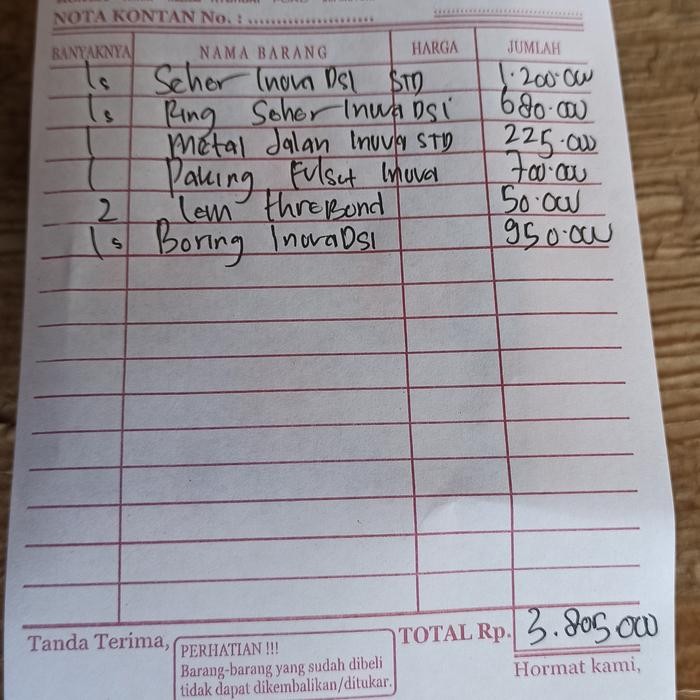 NOTA KONTAN No. : ......................
BANYAKNYA NAMA BARANG HARGA JUMLAH
1s Seher Inova DSI STD 1.200.000
1s Ring Seher Inova DSi 680.000
1 Metal Jalan Inova STD 225.000
1 Paking Fulset Inova 700.000
2 lem threBond 50.000
1s Boring Inova DSI 950.000
TOTAL Rp. 3.805.000
Tanda Terima,
PERHATIAN !!!
Barang-barang yang sudah dibeli
tidak dapat dikembalikan/ditukar.
Hormat kami,